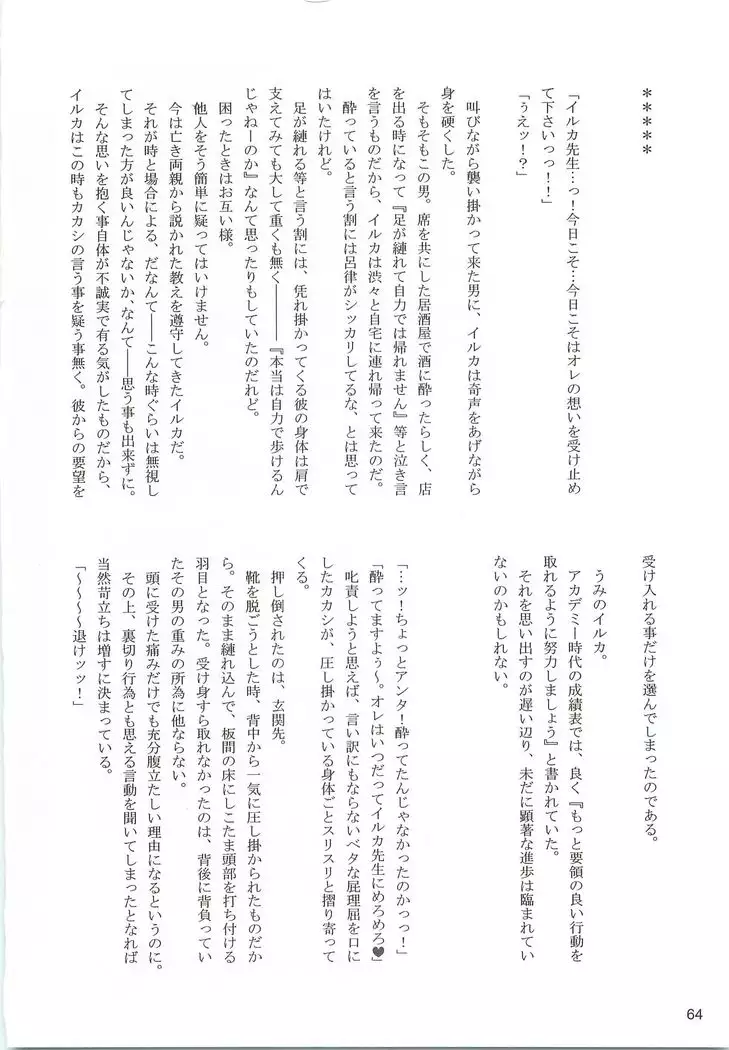 ＊＊＊＊＊
「イルカ先生…っ！今日こそ…今日こそはオレの想いを受け止め
て下さいっっ！！」
「ぅえッ！？」
叫びながら襲い掛かって来た男に、イルカは奇声をあげながら
身を硬くした。
そもそもこの男。席を共にした居酒屋で酒に酔ったらしく、店
を出る時になって『足が縺れて自力では帰れません』等と泣き言
を言うものだから、イルカは渋々と自宅に連れ帰って来たのだ。
酔っていると言う割には呂律がシッカリしてるな、とは思って
はいたけれど。
足が縺れる等と言う割には、凭れ掛かってくる彼の身体は肩で
支えてみても大して重くも無く―――『本当は自力で歩けるん
じゃねーのか』なんて思ったりもしていたのだれど。
困ったときはお互い様。
他人をそう簡単に疑ってはいけません。
今は亡き両親から説かれた教えを遵守してきたイルカだ。
それが時と場合による、だなんて――こんな時ぐらいは無視し
てしまった方が良いんじゃないか、なんて――思う事も出来ずに。
そんな思いを抱く事自体が不誠実で有る気がしたものだから、
イルカはこの時もカカシの言う事を疑う事無く。彼からの要望を
受け入れる事だけを選んでしまったのである。
うみのイルカ。
アカデミー時代の成績表では、良く『もっと要領の良い行動を
取れるように努力しましょう』と書かれていた。
それを思い出すのが遅い辺り、未だに顕著な進歩は臨まれてい
ないのかもしれない。
「…ッ！ちょっとアンタ！酔ってたんじゃなかったのかっっ！」
「酔ってますよぅ～。オレはいつだってイルカ先生にめろめろ♥」
叱責しようと思えば、言い訳にもならないベタな屁理屈を口に
したカカシが、圧し掛かっている身体ごとスリスリと摺り寄って
くる。
押し倒されたのは、玄関先。
靴を脱ごうとした時、背中から一気に圧し掛かられたものだか
ら。そのまま縺れ込んで、板間の床にしこたま頭部を打ち付ける
羽目となった。受け身すら取れなかったのは、背後に背負ってい
たその男の重みの所為に他ならない。
頭に受けた痛みだけでも充分腹立たしい理由になるというのに。
その上、裏切り行為とも思える言動を聞いてしまったとなれば
当然苛立ちは増すに決まっている。
「～～～～退けッッ！」
64